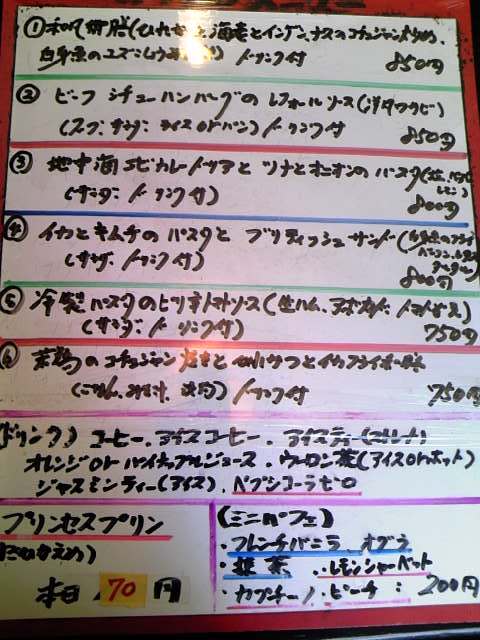 ① 和風御膳(ひれかつ 海老とインゲン、ナスのコチュジャン炒め、
白身魚のユズこしょう 焼) ドリンク付 850円
② ビーフシチューハンバーグの レフォールソース(洋ワサビ)
(スープ、サラダ、ライスorパン) ドリンク付 850円
③ 地中海エビカレードリアと ツナとオニオンのパスタ
(サラダ、ドリンク付) レモン) 800円
④ イカとキムチのパスタと ブリティッシュサンド(白身魚のフライ
(サラダ、ドリンク付)
タルタル) 800円
⑤ 冷製パスタのピリ辛トマトソース(生ハム、アボカド、トマト
(サラダ、ドリンク付) 750円
⑥ 若鶏のコチュジャン焼きと 串かつとイカフライ
(ごはん、みそ汁、漬物) ドリンク付 750円
(ドリンク) コーヒー、アイスコーヒー、アイスティー
オレンジorパイナップルジュース、ウーロン茶(アイスorホット)
ジャスミンティー(アイス)、ペプシコーラゼロ
プリンセスプリン
本日 70円
(ミニパフェ)
・フレンチバニラ
・抹茶 ・レモンシャーベット
・カプチーノ ・ピーチ : 200円